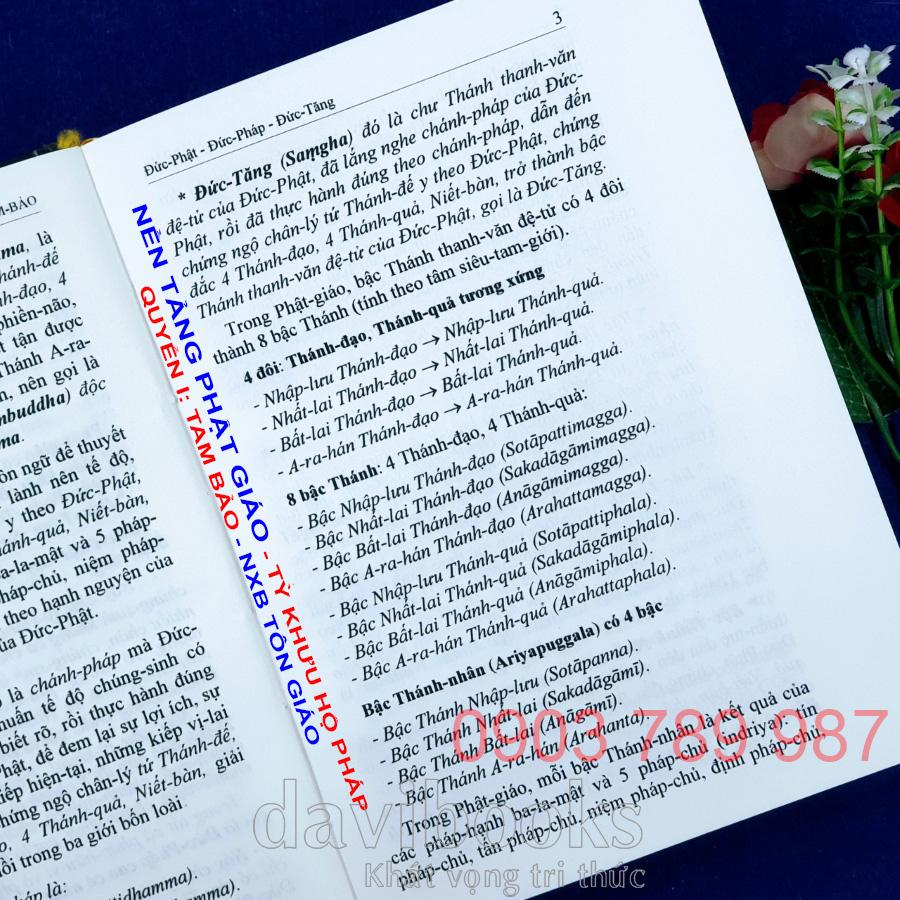 M-BẢO
mma, là
hánh-đế
nh-đạo, 4
phiền-não,
t tận được
Thánh A-ra-
n, nên gọi là
mbuddha) độc
ma.
ôn ngữ để thuyết
lành nên tế độ,
y theo Đức-Phật,
ánh-quả, Niết-bàn,
a-la-mật và 5 pháp-
háp-chủ, niệm pháp-
theo hạnh nguyện của
ủa Đức-Phật.
là chánh-pháp mà Đức-
huấn tế độ chúng-sinh có
biết rõ, rồi thực hành đúng
Phật, để đem lại sự lợi ích, sự
iếp hiện-tại, những kiếp vị-lai
hứng ngộ chân-lý tứ Thánh-đế,
o, 4 Thánh-quả, Niết-bàn, giải
ồi trong ba giới bốn loài.
háp là:
ttidhamma).
mma).
3
Đức-Phật - Đức-Pháp - Đức-Tăng
* Đức-Tăng (Saṃgha) đó là chư Thánh thanh-văn
đệ-tử của Đức-Phật, đã lắng nghe chánh-pháp của Đức-
Phật, rồi đã thực hành đúng theo chánh-pháp, dẫn đến
chứng ngộ chân-lý tứ Thánh-đế y theo Đức-Phật, chứng
đắc 4 Thánh-đạo, 4 Thánh-quả, Niết-bàn, trở thành bậc
Thánh thanh-văn đệ-tử của Đức-Phật, gọi là Đức-Tăng.
Trong Phật-giáo, bậc Thánh thanh-văn đệ-tử có 4 đôi
thành 8 bậc Thánh (tính theo tâm siêu-tam-giới).
4 đôi: Thánh-đạo, Thánh-quả tương xứng
- Nhập-lưu Thánh-đạo → Nhập-lưu Thánh-quả.
- Nhất-lai Thánh-đạo → Nhất-lai Thánh-quả.
- Bất-lai Thánh-đạo → Bất-lai Thánh-quả.
- A-ra-hán Thánh-đạo → A-ra-hán Thánh-quả.
8 bậc Thánh: 4 Thánh-đạo, 4 Thánh-quả:
- Bậc Nhập-lưu Thánh-đạo (Sotāpattimagga).
- Bậc Nhất-lai Thánh-đạo (Sakadāgāmimagga).
- Bậc Bất-lai Thánh-đạo (Anāgāmimagga).
- Bậc A-ra-hán Thánh-đạo (Arahattamagga).
- Bậc Nhập-lưu Thánh-quả (Sotāpattiphala).
- Bậc Nhất-lai Thánh-quả (Sakadāgāmiphala).
- Bậc Bất-lai Thánh-quả (Anāgāmiphala).
- Bậc A-ra-hán Thánh-quả (Arahattaphala).
Bậc Thánh-nhân (Ariyapuggala) có 4 bậc
- Bậc Thánh Nhập-lưu (Sotāpanna).
- Bậc Thánh Nhất-lai (Sakadāgāmī).
- Bậc Thánh Bất-lai (Anāgāmī).
- Bậc Thánh A-ra-hán (Arahanta).
Trong Phật-giáo, mỗi bậc Thánh-nhân là kết quả của
các pháp-hạnh ba-la-mật và 5 pháp-chủ (indriya): tín
pháp-chủ, tấn pháp-chủ, niệm pháp-chủ, định pháp-chủ,
NỀN TẢNG PHẬT GIÁO - TỲ KHƯU HỘ PHÁP
QUYỂN I: TAM BẢO - NXB TÔN GIÁO
0903 789 987
davibooks
Khát vọng tri thức